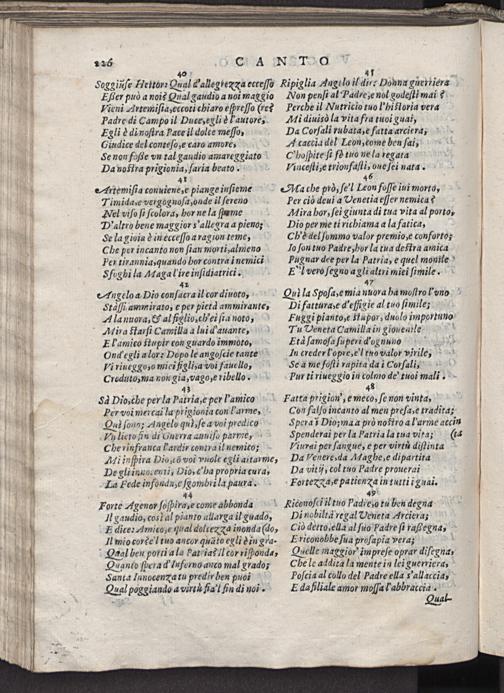 226
CANTO
40
Soggiũse Hettor: Qual d'allegrezza eccesso
Esser può a noi? Qual gaudio a noi maggio
Vieni Artemisia, eccoti chiaro espresso (re?
Padre di Campo il Duce, egli è l'autore,
Egli è di nostra Pace il dolce messo,
Giudice del conteso, e caro amore,
Se non fosse un tal gaudio amareggiato
Da nostra prigionia, saria beato.
41
Artemisia conuiene, e piange insieme
Timida, e vergognosa, onde il sereno
Nel viso si scolora, hor ne la speme
D'altro bene maggior s'allegra a pieno;
Se la gioia è in eccesso a ragion teme,
Che per incanto non sian morti, almeno
Per tirannia, quando hor contra i nemici
Sfoghi la Maga l'ire insidiatrici.
42
Angelo a Dio consacra il cor diuoto,
Stassi ammirato, e per pietà ammirante,
A la nuora, & al figlio, ch'ei sia noto,
Mira starsi Camilla a lui d'auante,
E l'amico stupir con guardo immoto,
Ond'egli a lor: Dopo le angoscie tante
Vi riueggo, o miei figli, a voi fauello,
Creduto, ma non già, vago, e ribello.
43
Sà Dio, che per la Patria, e per l'amico
Per voi mercai la prigionia con l'arme,
Quì sono; Angelo quì, se a voi predico
Vn lieto fin di Guerra auuiso parme,
Che rinfranca l'ardir contra il nemico;
Mi inspira Dio, cō voi vuole egli aitarme,
De gli innocenti, Dio, è la propria cura,
La Fede infonde, e sgombri la paura.
44
Forte Agenor sospira, e come abbonda
Il gaudio, così al pianto allarga il guado,
E dice: Amico, e qual dolcezza inonda (do,
Il mio cor? e'l tuo ancor quāto egli è in gra-
Qual ben porti a la Patria? Il cor risponda,
Quanto spera d'Inferno anco mal grado;
Santa Innocenza tu predir ben puoi
Qual poggiando a virtù sia'l fin di noi.
45
Ripiglia Angelo il dir: Donna guerriera
Non pensi al Padre, e nol godesti mai?
Perche il Nutricio tuo l'historia vera
Mi diuisò la vita fra tuoi guai,
Da Corsali rubata, e fatta arciera,
A caccia del Leon, come ben sai,
C'hospite si fè tuo ne la regata
Vincesti, e trionfasti, oue sei nata.
46
Ma che prò, se'l Leon fosse iui morto,
Per ciò deui a Venetia esser nemica?
Mira hor, sei giunta di tua vita al porto,
Dio per me ti richiama a la fatica,
Ch'è del sommo valor premio, e conforto;
Io son tuo Padre, hor la tua destra amica
Pugnar dee per la Patria, e quel monile
E'l vero segno a gli altri miei simile.
47
Quì la Sposa, e mia nuora ha mostro l'vno
Di fattura, e d'effigie al tuo simile;
Fuggi pianto, e stupor, duolo importuno
Tu Veneta Camilla in giouenile
Età famosa superi d'ognuno
In creder l'opre, e'l tuo valor virile,
Se a me fosti rapita da i Corsali,
Pur ti riueggio in colmo de' tuoi mali.
48
Fatta prigion', e meco, se non vinta,
Con falso incanto al men presa, e tradita;
Spera ì Dio; ma a prò nostro a l'arme accin
Spenderai per la Patria la tua vita; (ta
Viurai per sangue, e per virtù distinta
Da Venere, da Maghe, e dipartita
Da vitij, col tuo Padre prouerai
Fortezza, e patienza in tutti i guai.
49
Riconosci il tuo Padre, o tu ben degna
Di nobiltà regal Veneta Arciera;
Ciò detto, ella al suo Padre si rassegna,
E riconobbe sua prosapia vera;
Quelle maggior' imprese oprar disegna,
Che le addita la mente in lei guerriera,
Poscia al collo del Padre ella s'allaccia,
E da filiale amor mossa l'abbraccia.
Qual